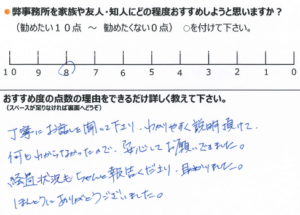 ●弊事務所を家族や友人・知人にどの程度おすすめしようと思いますか?
(勧めたい10点 ～ 勧めたくない0点) ○を付けて下さい。
10 9 8 7 6 5 4 3 2 1 0
おすすめ度の点数の理由をできるだけ詳しく教えて下さい。
(スペースが足りなければ裏面へどうぞ)
丁寧にお話しを聞いて下さり、わかりやすく説明頂けて、
何もわからなかったので、安心してお願いできました。
経過状況もちゃんと報告くださり、助かりました。
ほんとうにありがとうございました。